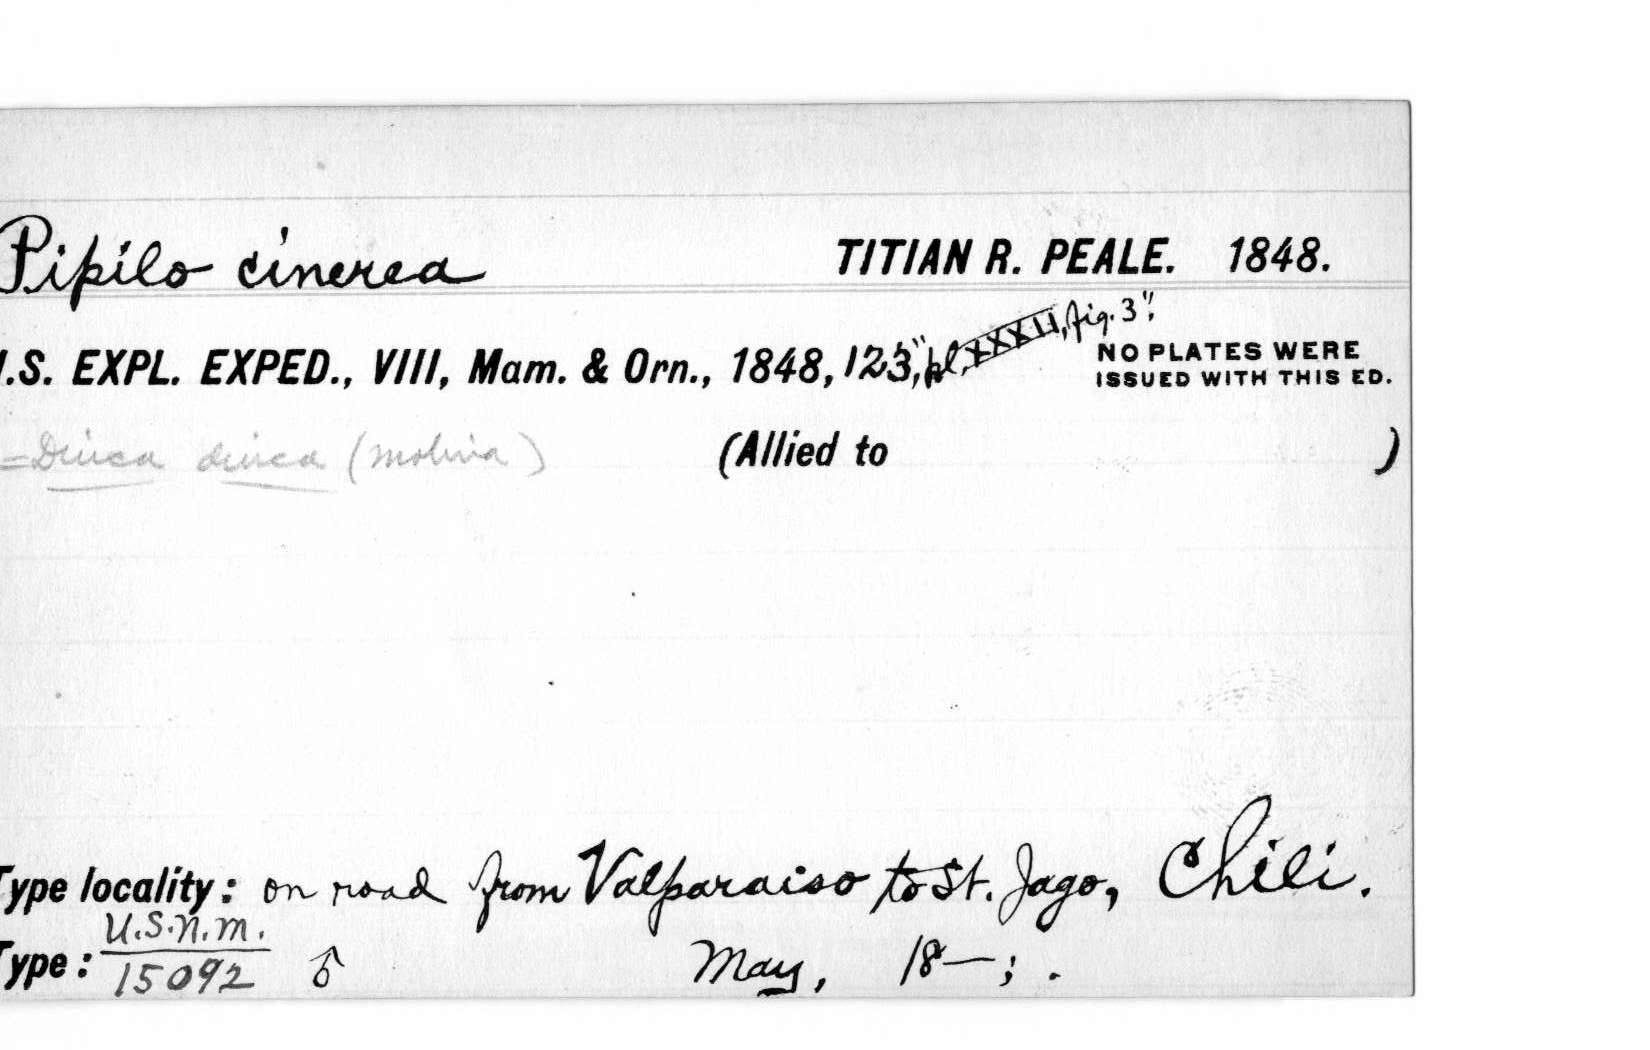 Pipilo cinerea TITIAN R. PEALE. 1848.
.S. EXPL. EXPED., VIII, Mam. & Orn., 1848, 123," pl. XXXII, fig. 3".
NO PLATES WERE
ISSUED WITH THIS ED.
=Diuca diuca (Molina) (Allied to )
Type locality: on road from Valparaiso to St. Jago, Chili.
Type: U.S.N.M.
15092 ♂ May, 18—; .